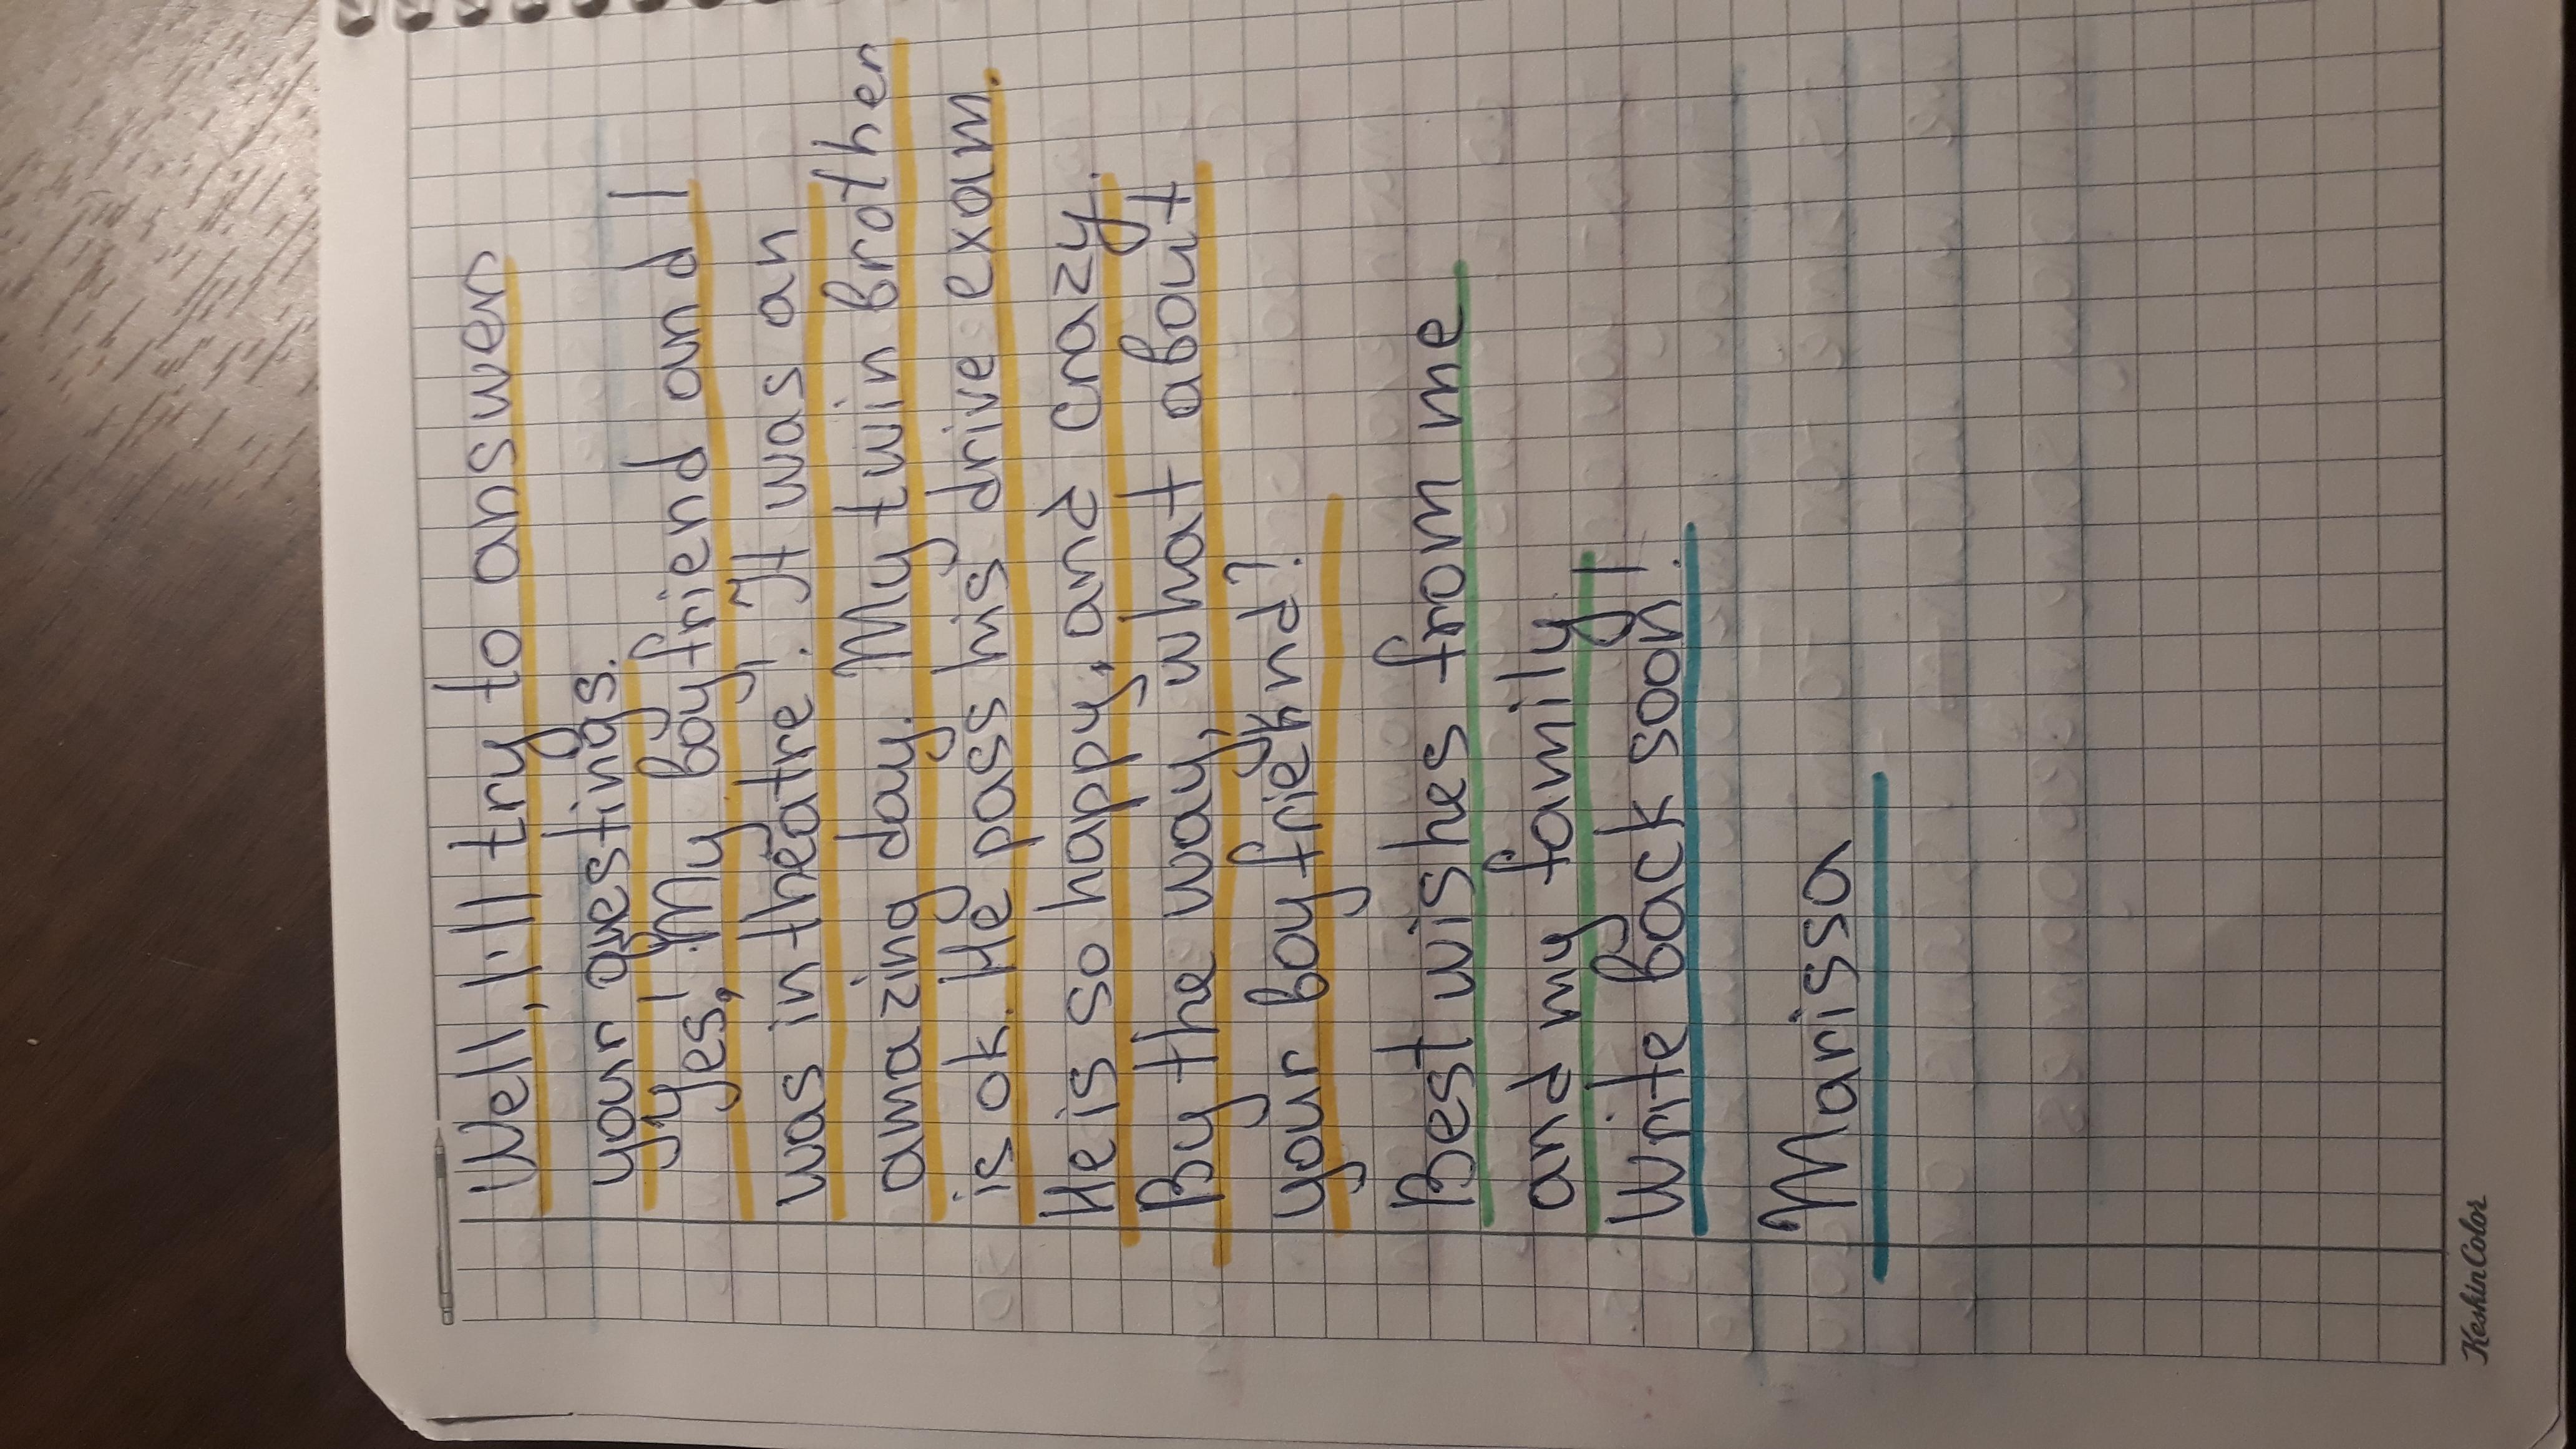 Well, I'll try to answer
your questings.
Yes, My boyfriend and I
was in theatre. It was an
amazing day. My twin brother
is ok. He pass his drive exam.
He is so happy, and crazy.
By the way, what about
your boyfriend?
Best wishes from me
and my family!
Write back soon!
Marissa
KeskinColor